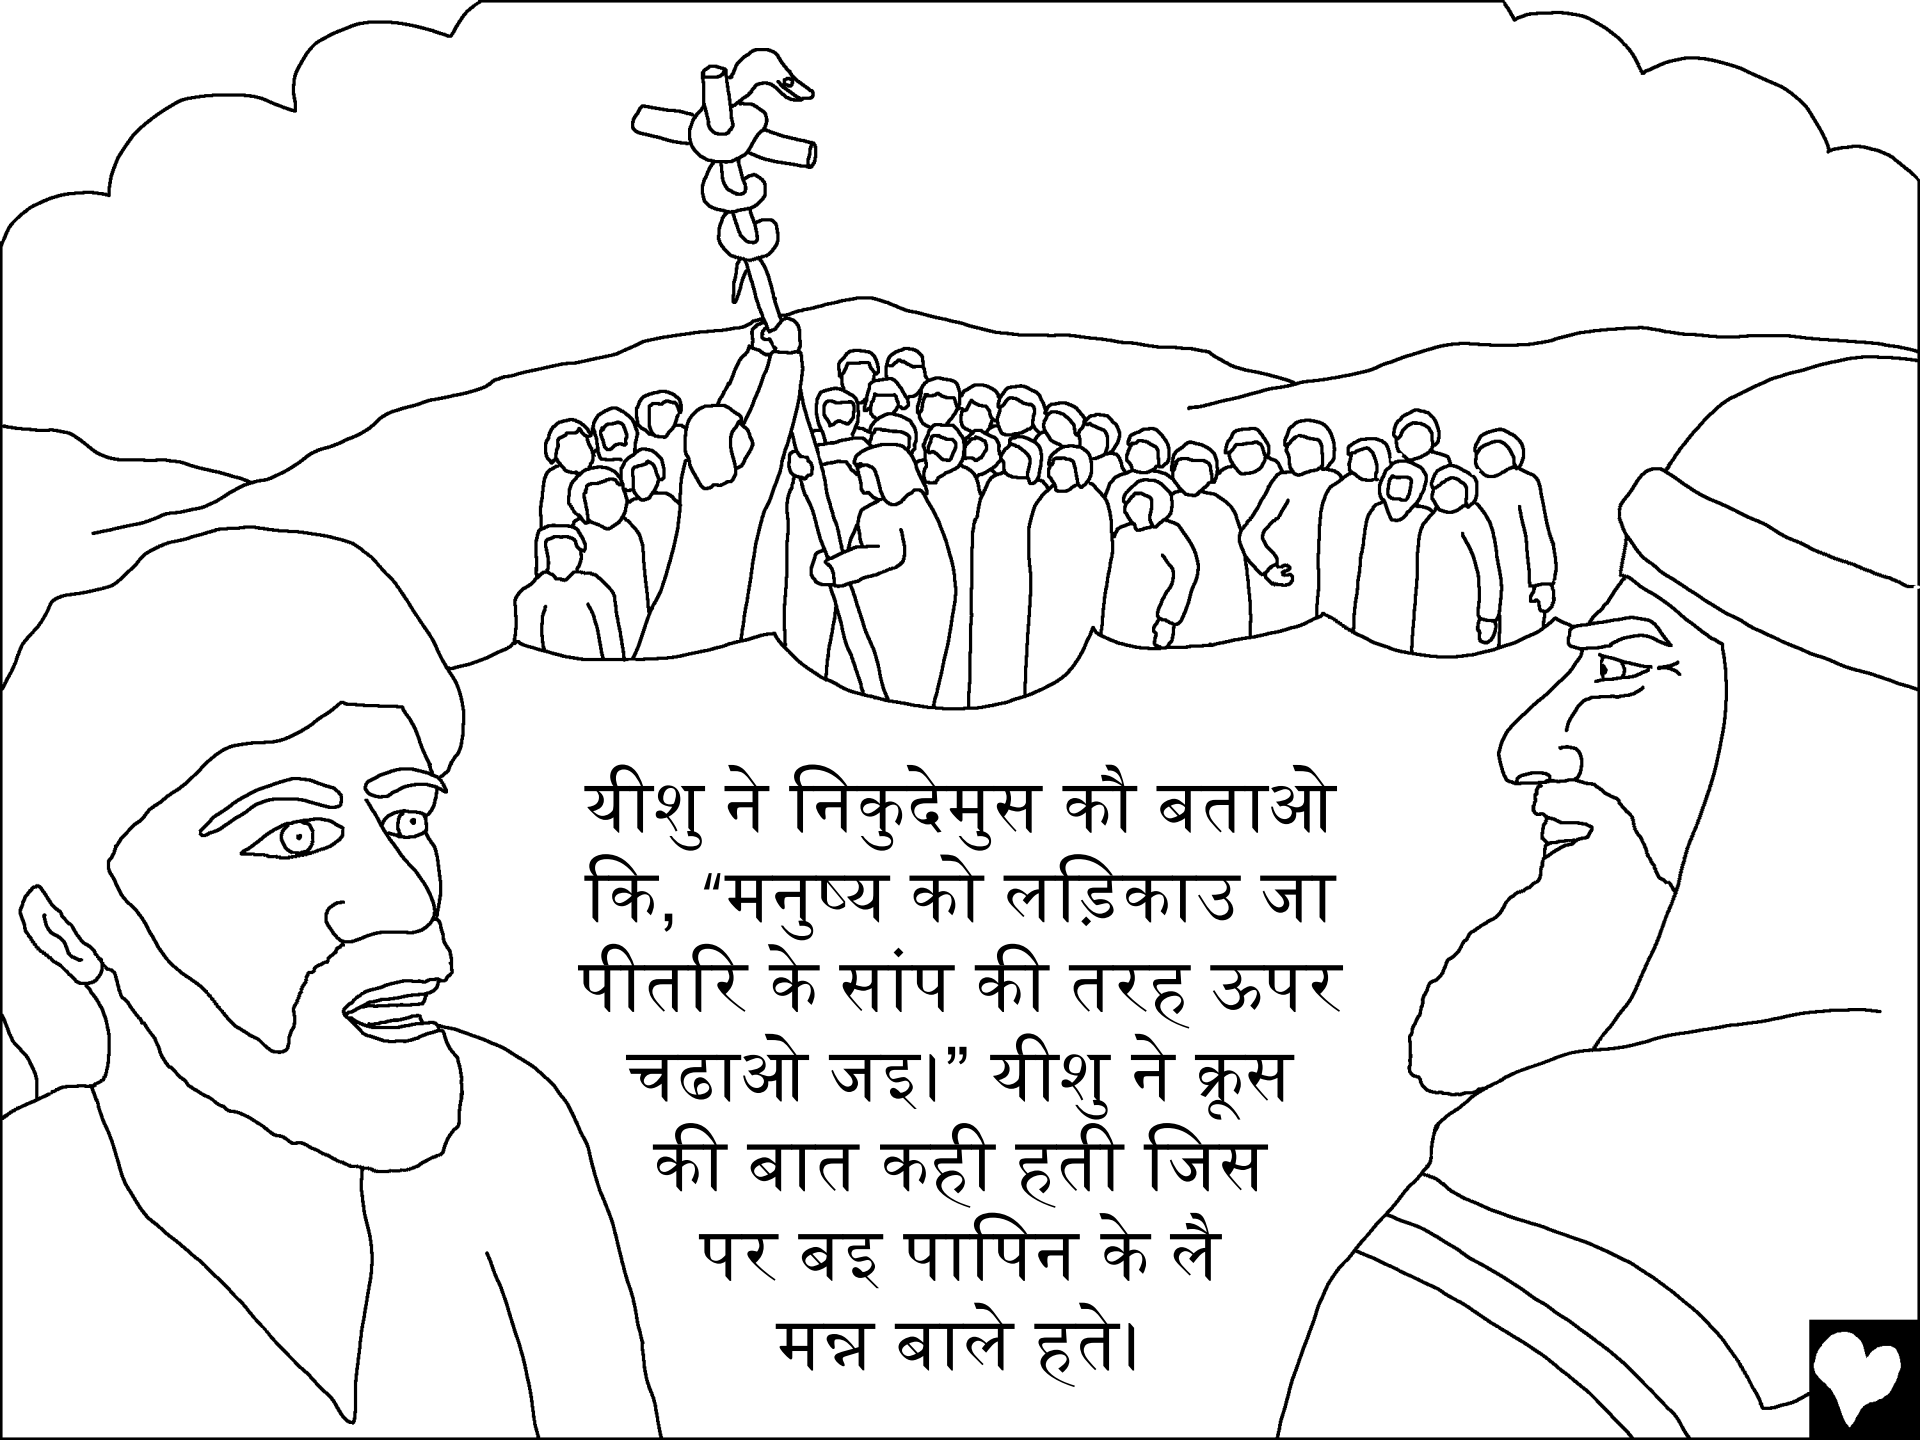 यीशु ने निकुदेमुस कौ बताओ
कि, “मनुष्य को लड़िकाउ जा
पीतरि के सांप की तरह ऊपर
चढाओ जइ।” यीशु ने क्रूस
की बात कही हती जिस
पर बइ पापिन के लै
मन्न बाले हते।